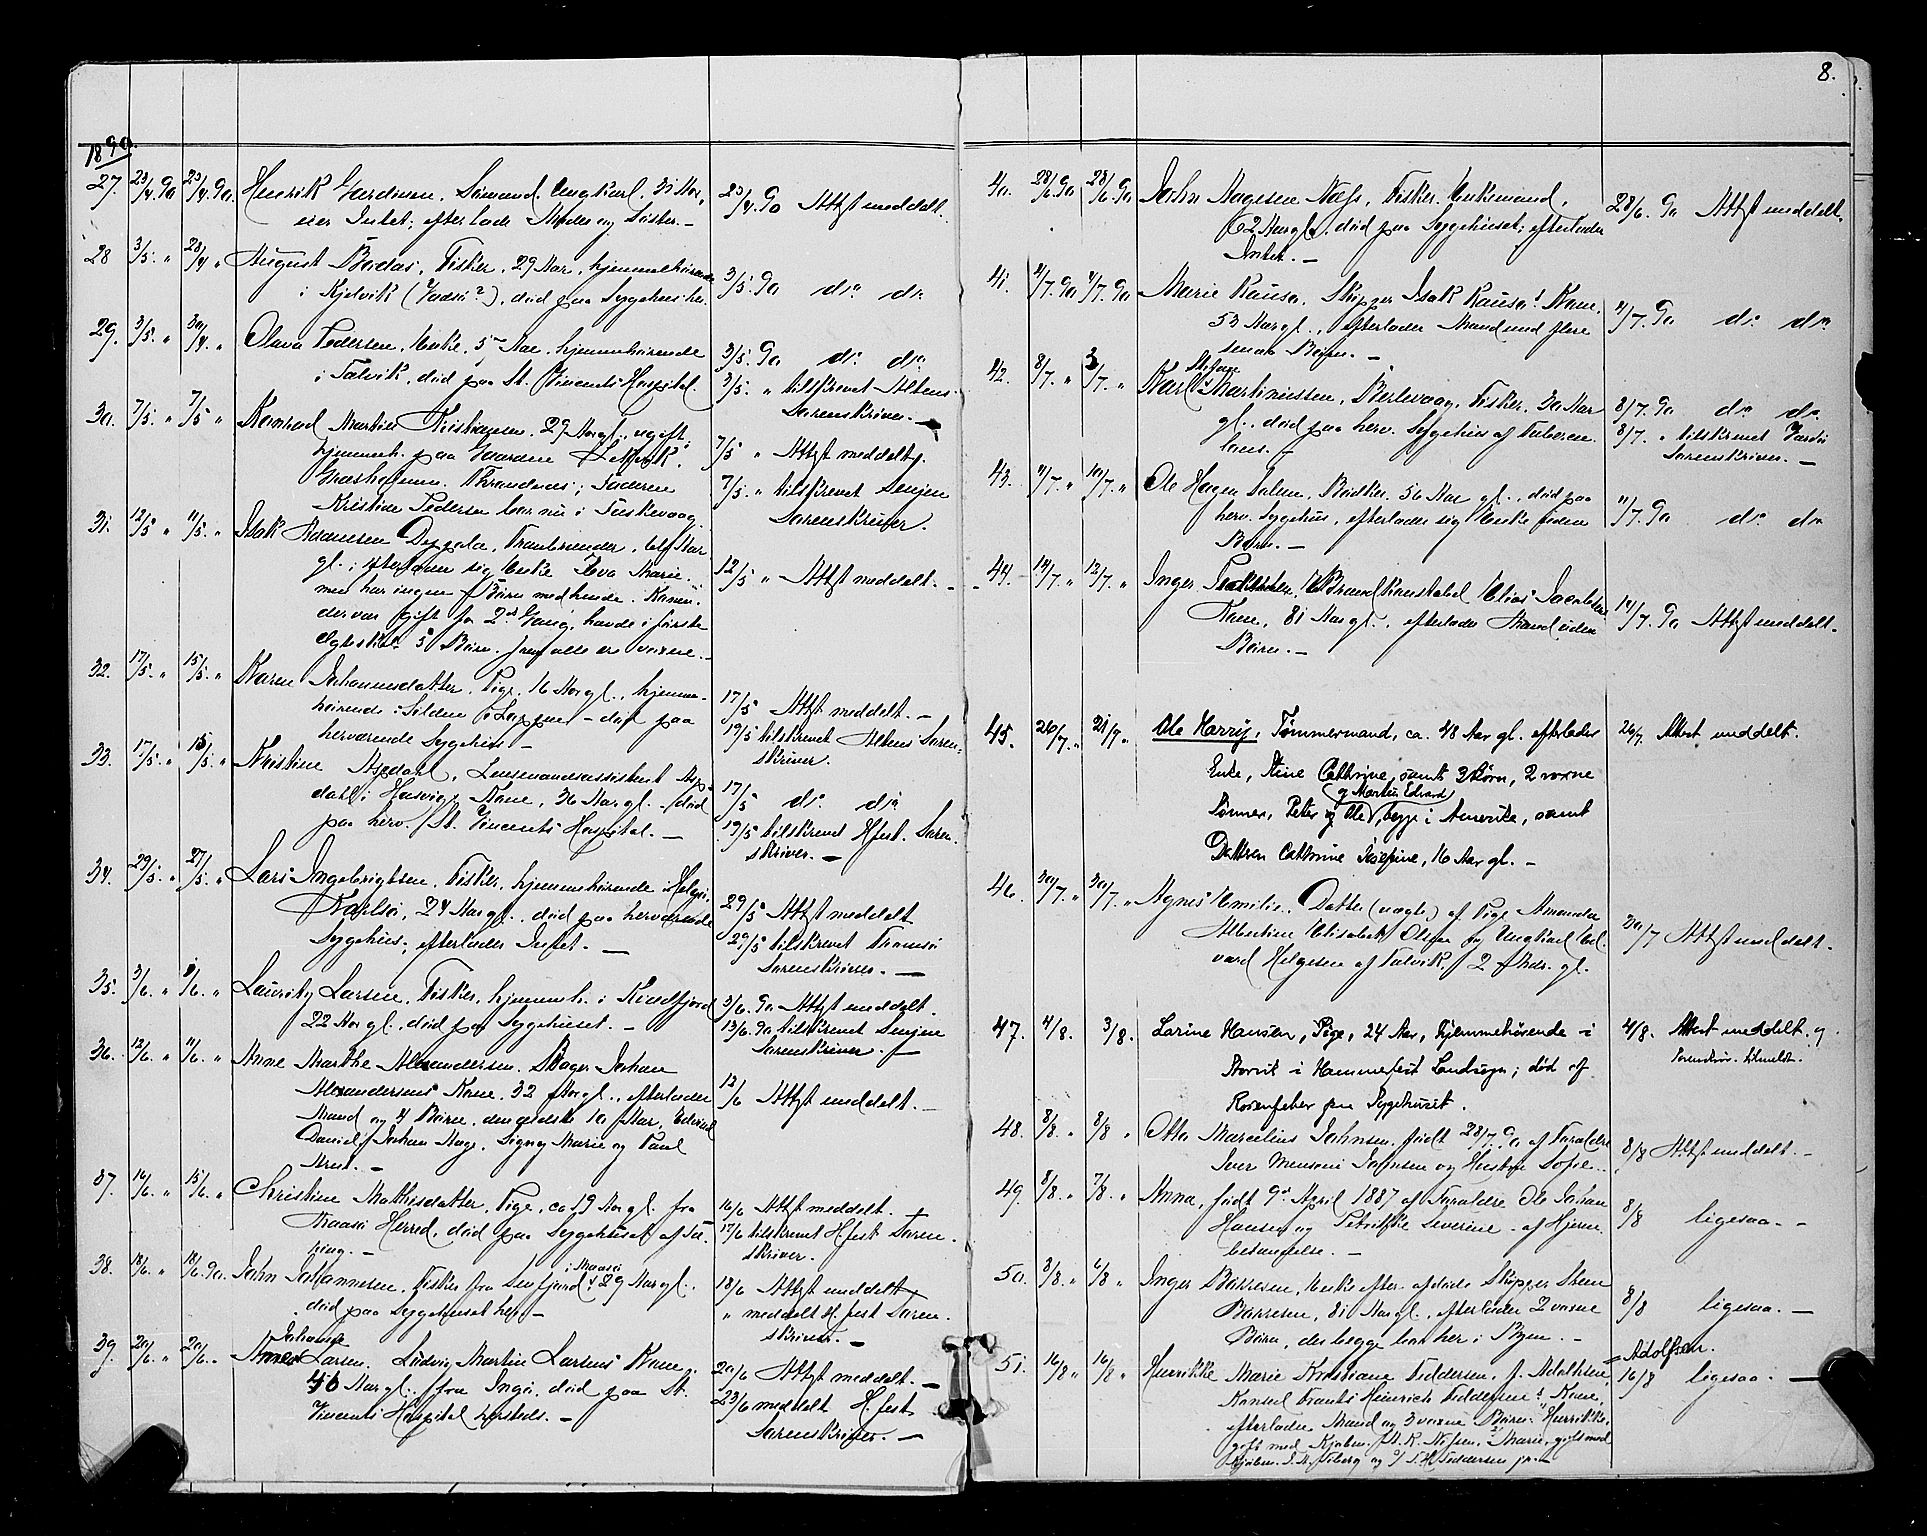 8.
1890.
27. 23/4 90 23/4 90. Henrik Gardisen, Sømand, Ungkarl, 31 Aar, 23/4. 90 Attest meddelt.
eier Intet; efterlader Moder og Søster. –
28 3/5. " 28/4 " August Bordas, Fisker, 29 Aar, hjemmehørende 3/5. 90 do. do.
i Kjelvik (Vadsø?), død paa Sygehuset her.
29. 3/5 " 30/4. " Olava Pedersen, Enke, Aar, hjemmehørende 3/5. 90 do. do.
i Talvik, død paa St. Vincents Hospital. 3/5. " tilskrevet Altens
Sorenskriver. –
30. 7/5. " 7/5 " Konrad Martin Kristiansen, 29 Aar gl., ugift,
hjemmeh. paa Gaarden 7/5 " Attest meddelt.
Trondenes; Faderen 7/5. " tilskrevet Senjen
Kristian Pedersen bor nu i Tuskevaag. Sorenskriver.
31. 12/5 " 11/5. " Isak Adamsen Aar
gl.; efterlader sig Enke Eva Marie. 12/5 " Attest meddelt. –
men har ingen Børn med hende.
der var gift for 2den Gang, havde i første
Ægteskab 5 Børn, som alle er voxne. –
32. 17/5. " 15/5. " Karen Johannesdatter, Pige, 16 Aar gl., hjemme-
hørende i Silden i Loppen – død paa 17/5 Attest meddelt. –
herværende Sygehus – 19/5 tilskrevet Altens Soren-
skriver.
33. 17/5. " 15/5. " Kristine Aspdahl, Lensmandsassistent Asp-
dahl i Hasvigs Kone, 36 Aar gl. – død 17/5 do. do.
paa herv. St. Vincents Hospital. – 19/5 tilskrevet Hfest. Soren-
skriver. –
34. 29/5. " 27/5. " Lars Ingebrigtsen, Fisker, hjemmehørende i Helgø,
Karlsø, 24 Aar gl., død paa herværende 29/5 Attest meddelt
Sygehus; efterlader Intet. – 29/5 tilskrevet Tromsø
Sorenskriver. –
35. 3/6. " 1/6. " Lauritz Larsen, Fisker, hjemmeh. i 3/6. 90 Attest meddelt.
22 Aar gl., død paa Sygehuset. – 13/6. 90 tilskrevet Senjen
Sorenskriver. –
36. 12/6 " 11/6. " Anne Marthe Alexandersen, Johan
Alexandersens Kone, 32 Aar gl., efterlader 12/6 Attest meddelt. –
Mand og 4 Børn, den ældste 10 Aar, Edvind
Daniel, Johan Aage, Signy Marie og Paul
–
37. 16/6. " 15/6. " Christine Mathisdatter, Pige, ca 19 Aar gl. fra 16/6 Attest meddelt. –
Maasø Herred, død paa Sygehuset af Tæ- 17/6 tilskrevet H.fest Soren-
ring. – skriver.
i Maasø
38. 18/6. " 18/6. 90. John Johannesen, Fisker fra 29 Aar gl. 18/6 Attest meddelt
død paa Sygehuset her – " meddelt H.fest Soren-
skriver. –
Johanna
39. 20/6. " 20/6. " Larsen, Ludvig Martin Larsens Kone, 20/6 Attest meddelt. –
Aar gl., fra Ingø, død paa St. 23/6 meddelt H.fest
Vincents Hospital hersteds. – Sorenskriver. –
40. 28/6. 90 28/6. 90 John Aagesen Næss, Fisker, Enkemand, 28/6. 90 Attest meddelt.
62 Aar gl., død paa Sygehuset; efterlader
Intet. –
41. 4/7. 90 4/7. 90 Marie Kausa, Skipper Isak Kausas Kone, 4/7. 90 do. do.
53 Aar gl., efterlader Mand med flere
Børn. –
42. 8/7. " 3/7. " Karl Martinussen, Berlevaag, Fisker, 30 Aar 8/7. 90 do. do.
gl., død paa herv. Sygehus af Tuberku- 8/7. " tilskrevet Vardø
lose. – Sorenskriver. –
43. 11/7. " 10/7. " Ole Hagen Salen, Bødker, 56 Aar gl., død paa 11/7. 90 do. do.
herv. Sygehus, efterlader sig Enke uden
Børn. –
44. 14/7. " 12/7. " Inger Brandkonstabel Elias Jacobsens 14/7. 90 Attest meddelt.
Kone, 81 Aar gl., efterlader Mand uden
Børn. –
45. 26/7. " 21/7. " Ole Harrÿ, Tømmermand, ca. 48 Aar gl. efterlader 26/7. Attest meddelt.
Enke, Stine Cathrine, samt 3 Børn, 2 voxne
og Martin Edvard
Sønner, Peter og Ole, begge i Amerika, samt
Dattren Cathrine Josefine, 16 Aar gl. –
46. 30/7. " 30/7. " Agnes Emilie, Datter (uægte) af Pige Amanda 30/7 Attest meddelt.
Albertine Elisabeth Olsen og Ungkarl Ed-
vard Helgesen af Talvik, 2 Mdr. gl.
47. 4/8. 3/8. Larine Hansen, Pige, 24 Aar, hjemmehørende i 4/8. Attest meddelt. og
Storvik i Hammerfest Landsogn; død af Sorenskriv. tilmeldt.
Rosenfeber paa Sygehuset.
48. 8/8. " 8/8 " Otto Marcelius Johnsen, født 28/7. 90 af Forældre 8/8 Attest meddelt. –
Iver Johnsen og Hustru Sofie.
49. 8/8. " 7/8. " Anna, født 9de April 1887 af Forældre Ole Johan 8/8 ligesaa. –
Hansen og Petrikke Severine – af Hjerne-
betændelse. –
50. 8/8. " 6/8 " Inger Bærresen, Enke efter afdøde Skipper Steen 8/8 ligesaa. –
Bærresen, 81 Aar gl., efterlader 2 voxne
Børn, der begge bor her i Byen. –
= Adolfsen.
51. 16/8 " 16/8 " Henrikke Marie Kristiane Feddersen, f. 16/8 ligesaa. –
Konsul Frants Heinrich Feddersens Kone,
efterlader Mand og 3 voxne Børn: Henrikke,
gift med Kjøbm. Nissen, Marie, gift med
Kjøbm. og Feddersen jr. –